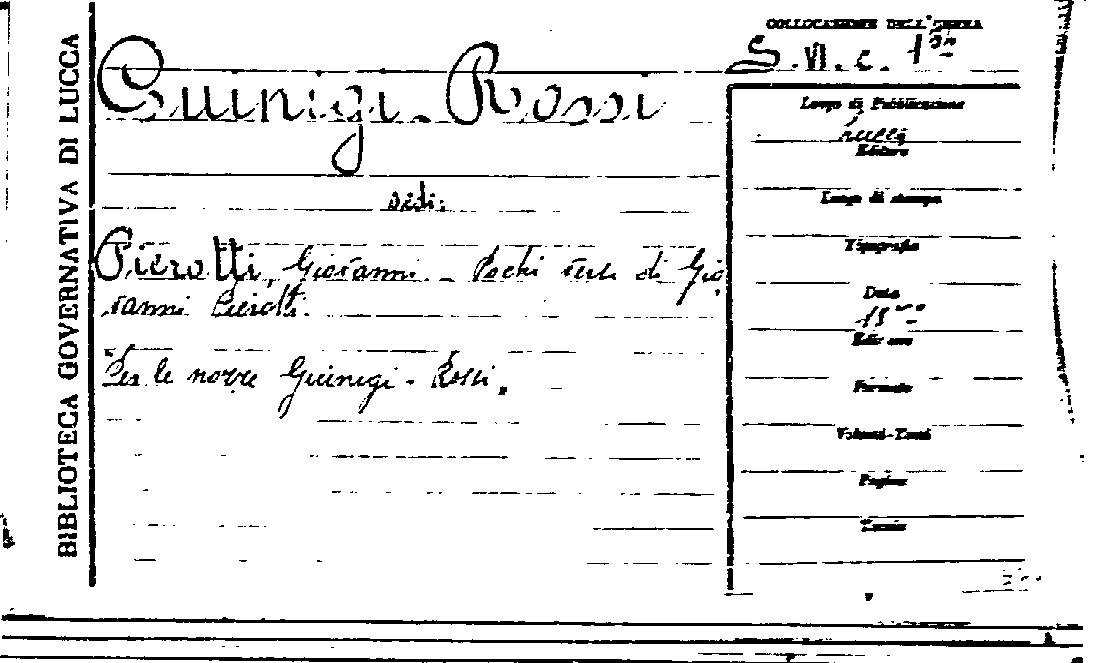 BIBLIOTECA GOVERNATIVA DI LUCCA
COLLOCAZIONE DELL'OPERA
S. VI. c.
Guinigi-Rossi
vedi:
Pierotti, Giovanni. - Pochi versi di Gio
vanni Pierotti.
Per le nozze Guinigi - Rossi.
Luogo di Pubblicazione
Lucca
Editore
Luogo di stampa
Tipografia
Data
Edizione
Formato
Volumi-Tomi
Pagine